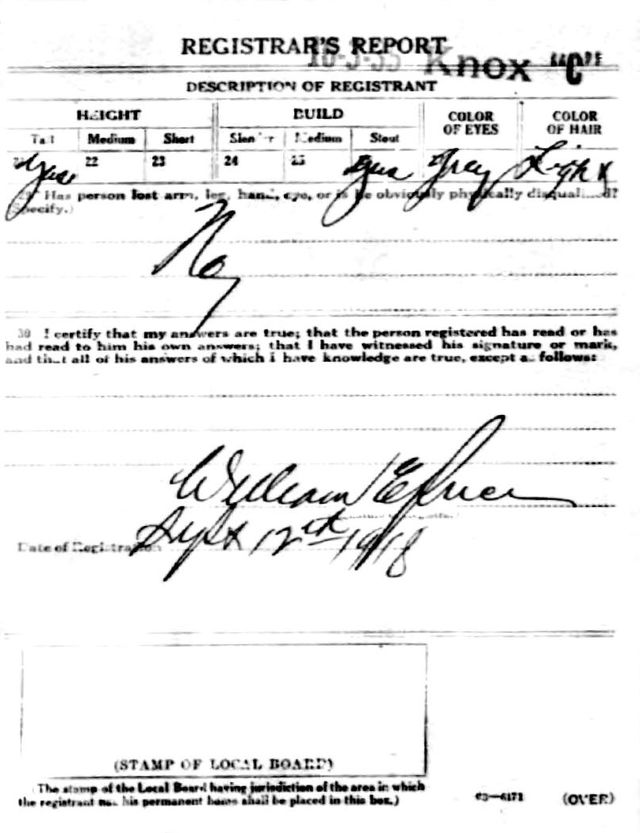 REGISTRAR'S REPORT
10-3-35 Knox "C"
DESCRIPTION OF REGISTRANT
HEIGHT BUILD COLOR OF EYES COLOR OF HAIR
Tall Medium Short Slender Medium Stout
21 22 23 24 25
Yes Yes Gray Light
29 Has person lost arm, leg, hand, eye, or is he obviously physically disqualified?
(Specify.)
No
30 I certify that my answers are true; that the person registered has read or has
had read to him his own answers; that I have witnessed his signature or mark,
and that all of his answers of which I have knowledge are true, except as follows:
William
Date of Registration Sept 12th 1918
(STAMP OF LOCAL BOARD)
(The stamp of the Local Board having jurisdiction of the area in which
the registrant has his permanent home shall be placed in this box.)
03—6171 (OVER)